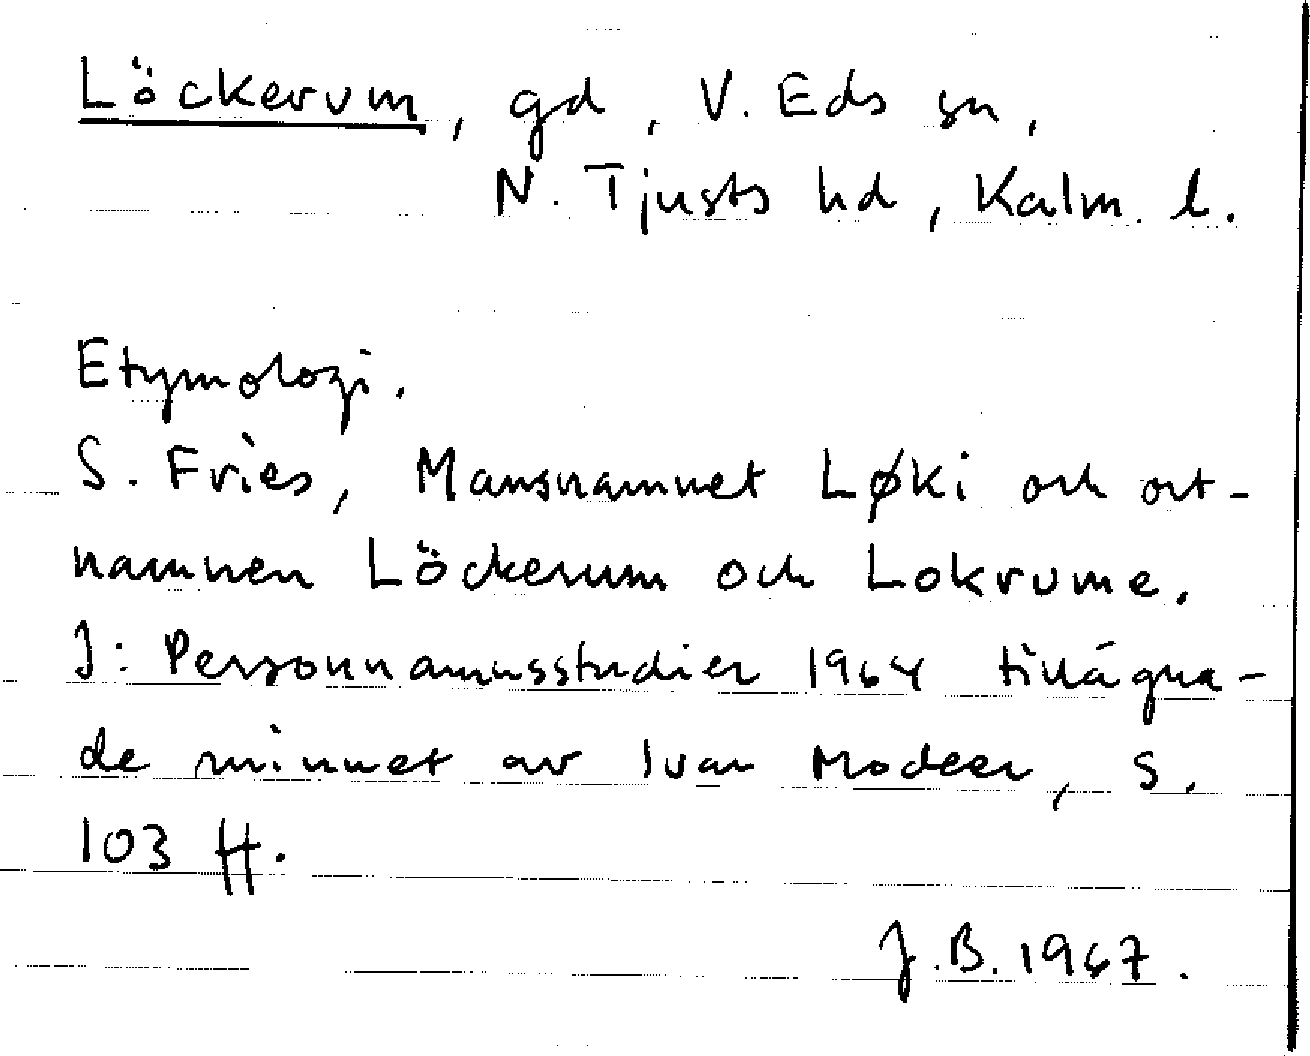 Löckerum, gd, V. Eds sn,
N. Tjusts hd, Kalm. l.
Etymologi.
S. Fries, Mansnamnet Løki och ort-
namnen Löckerum och Lokrume.
I: Personnamnsstudier 1964 tillägna-
de minnet av Ivar Modéer, S.
103 ff.
J.B. 1967.